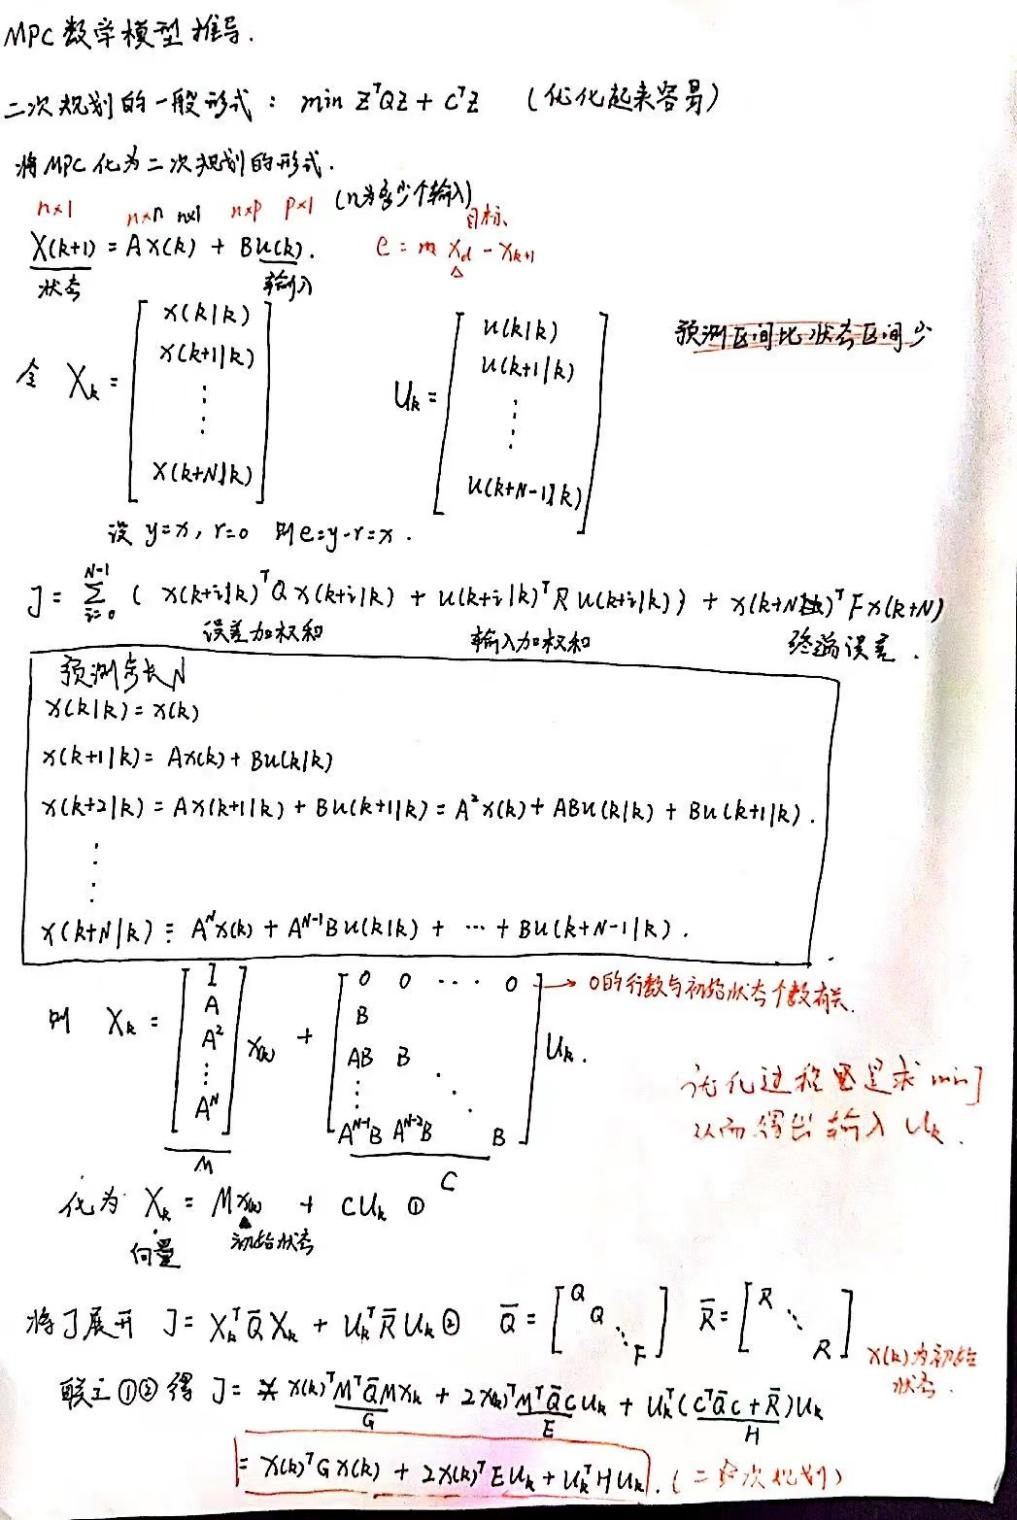 MPC数学模型推导.
二次规划的一般形式: min Z^TQZ + C^TZ (优化起来容易)
将MPC化为二次规划的形式.
n×1 n×n n×1 n×p p×1 (n为多少个输入)
X(k+1) = AX(k) + Bu(k). e = x_d - x_{k+1} 目标
状态 输入
令 X_k = [x(k|k) x(k+1|k) ⋮ x(k+N|k)] U_k = [u(k|k) u(k+1|k) ⋮ u(k+N-1|k)] 预测区间比状态区间少
设 y=x, r=0 则e=y-r=x.
J = Σ_{i=0}^{N-1} ( x(k+i|k)^TQx(k+i|k) + u(k+i|k)^TRu(k+i|k)) + x(k+N)^TFx(k+N)
误差加权和 输入加权和 终端误差.
预测步长N
x(k|k) = x(k)
x(k+1|k) = Ax(k) + Bu(k|k)
x(k+2|k) = Ax(k+1|k) + Bu(k+1|k) = A²x(k) + ABu(k|k) + Bu(k+1|k).
⋮
x(k+N|k) = A^Nx(k) + A^{N-1}Bu(k|k) + ⋯ + Bu(k+N-1|k).
则 X_k = [I A A² ⋮ A^N] x(k) + [0 0 ⋯ 0; B; AB B; ⋮ ⋱; A^{N-1}B A^{N-2}B B] U_k. → 0的行数与初始状态个数有关.
M C
优化过程是求min J
从而得出输入 U_k.
化为 X_k = Mx(k) + CU_k ①
向量 初始状态
将J展开 J = X_k^T Q̄ X_k + U_k^T R̄ U_k ② Q̄ = [Q Q ⋱ F] R̄ = [R ⋱ R]
X(k)为初始状态.
联立①②得 J = x(k)^TM^TQ̄Mx_k + 2x(k)^TM^TQ̄CU_k + U_k^T(C^TQ̄C+R̄)U_k
G E H
= x(k)^TGx(k) + 2x(k)^TEU_k + U_k^THU_k. (二次规划)